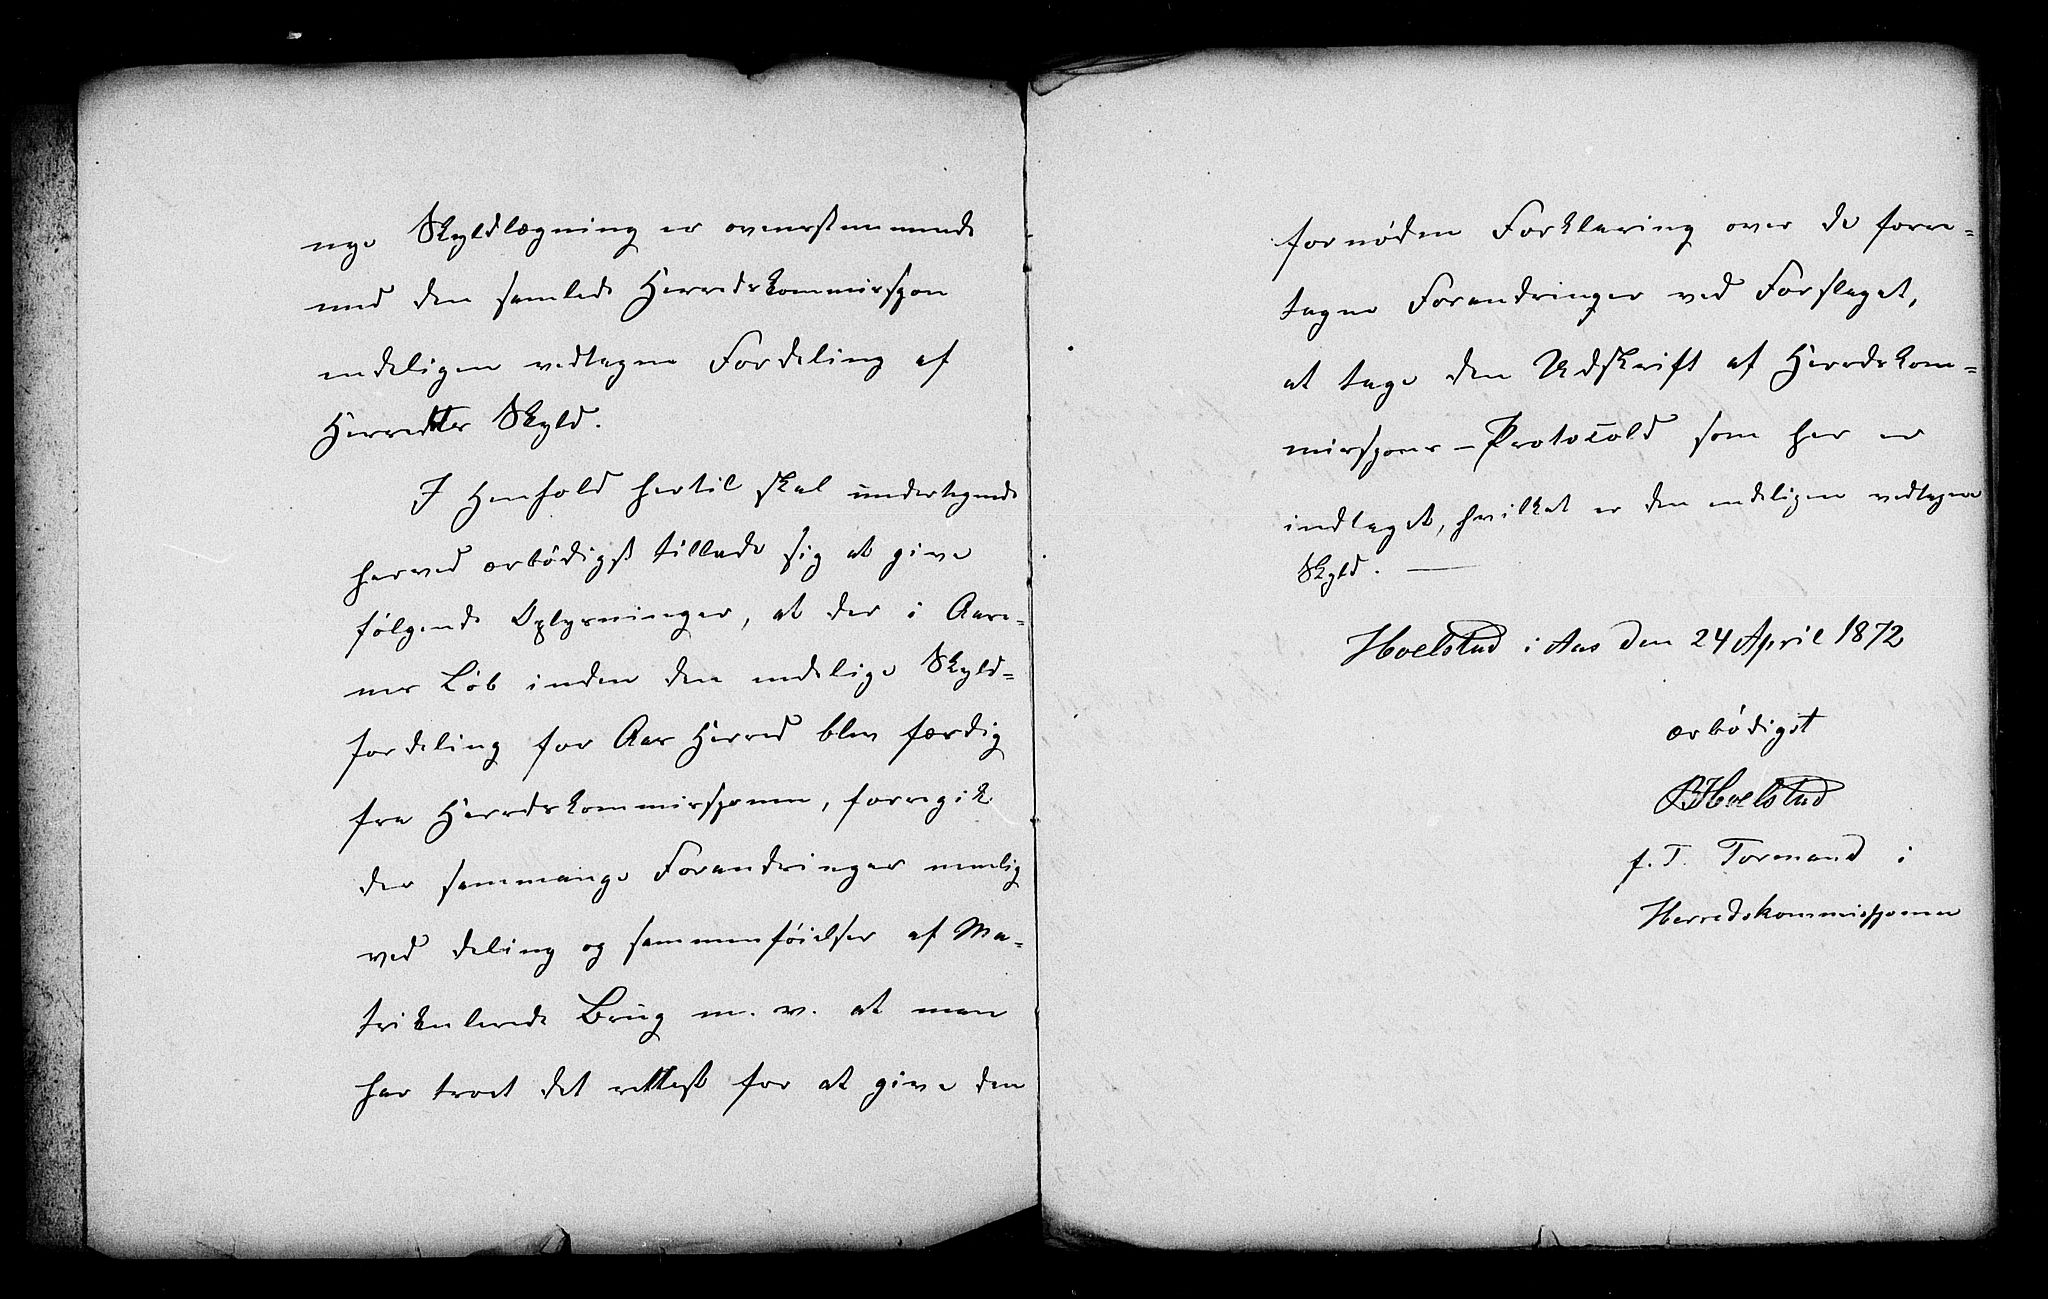 nye Skyldlægning er overenstemmende
med den samlede Herredskommission
endeligen vedtagne Fordeling af
Herredets Skyld.
I Henhold hertil skal undertegnede
herved ærbödigst tillade sig at give
fölgende Oplysninger, at der i Aare-
nes Löb inden den endelige Skyld=
fordeling for Aas Herred blev færdig
fra Herredskommissionen, foregik
der saamange Forandringer nemlig
ved deling og sammenföielser af Ma-
trikulerede Brug m. v. at man
har troet det rettest for at give den
fornöden Forklaring over de fore=
tagne Forandringer ved Forslaget,
at tage den Udskrift af Herredskom=
missionens-Protocold som her er
indtaget, hvilket er den endeligen vedtagne
Skyld. —
Hoelstad i Aas den 24 April 1872
ærbödigst
BHoelstad
f. T. Formand i
Herredskommissionen